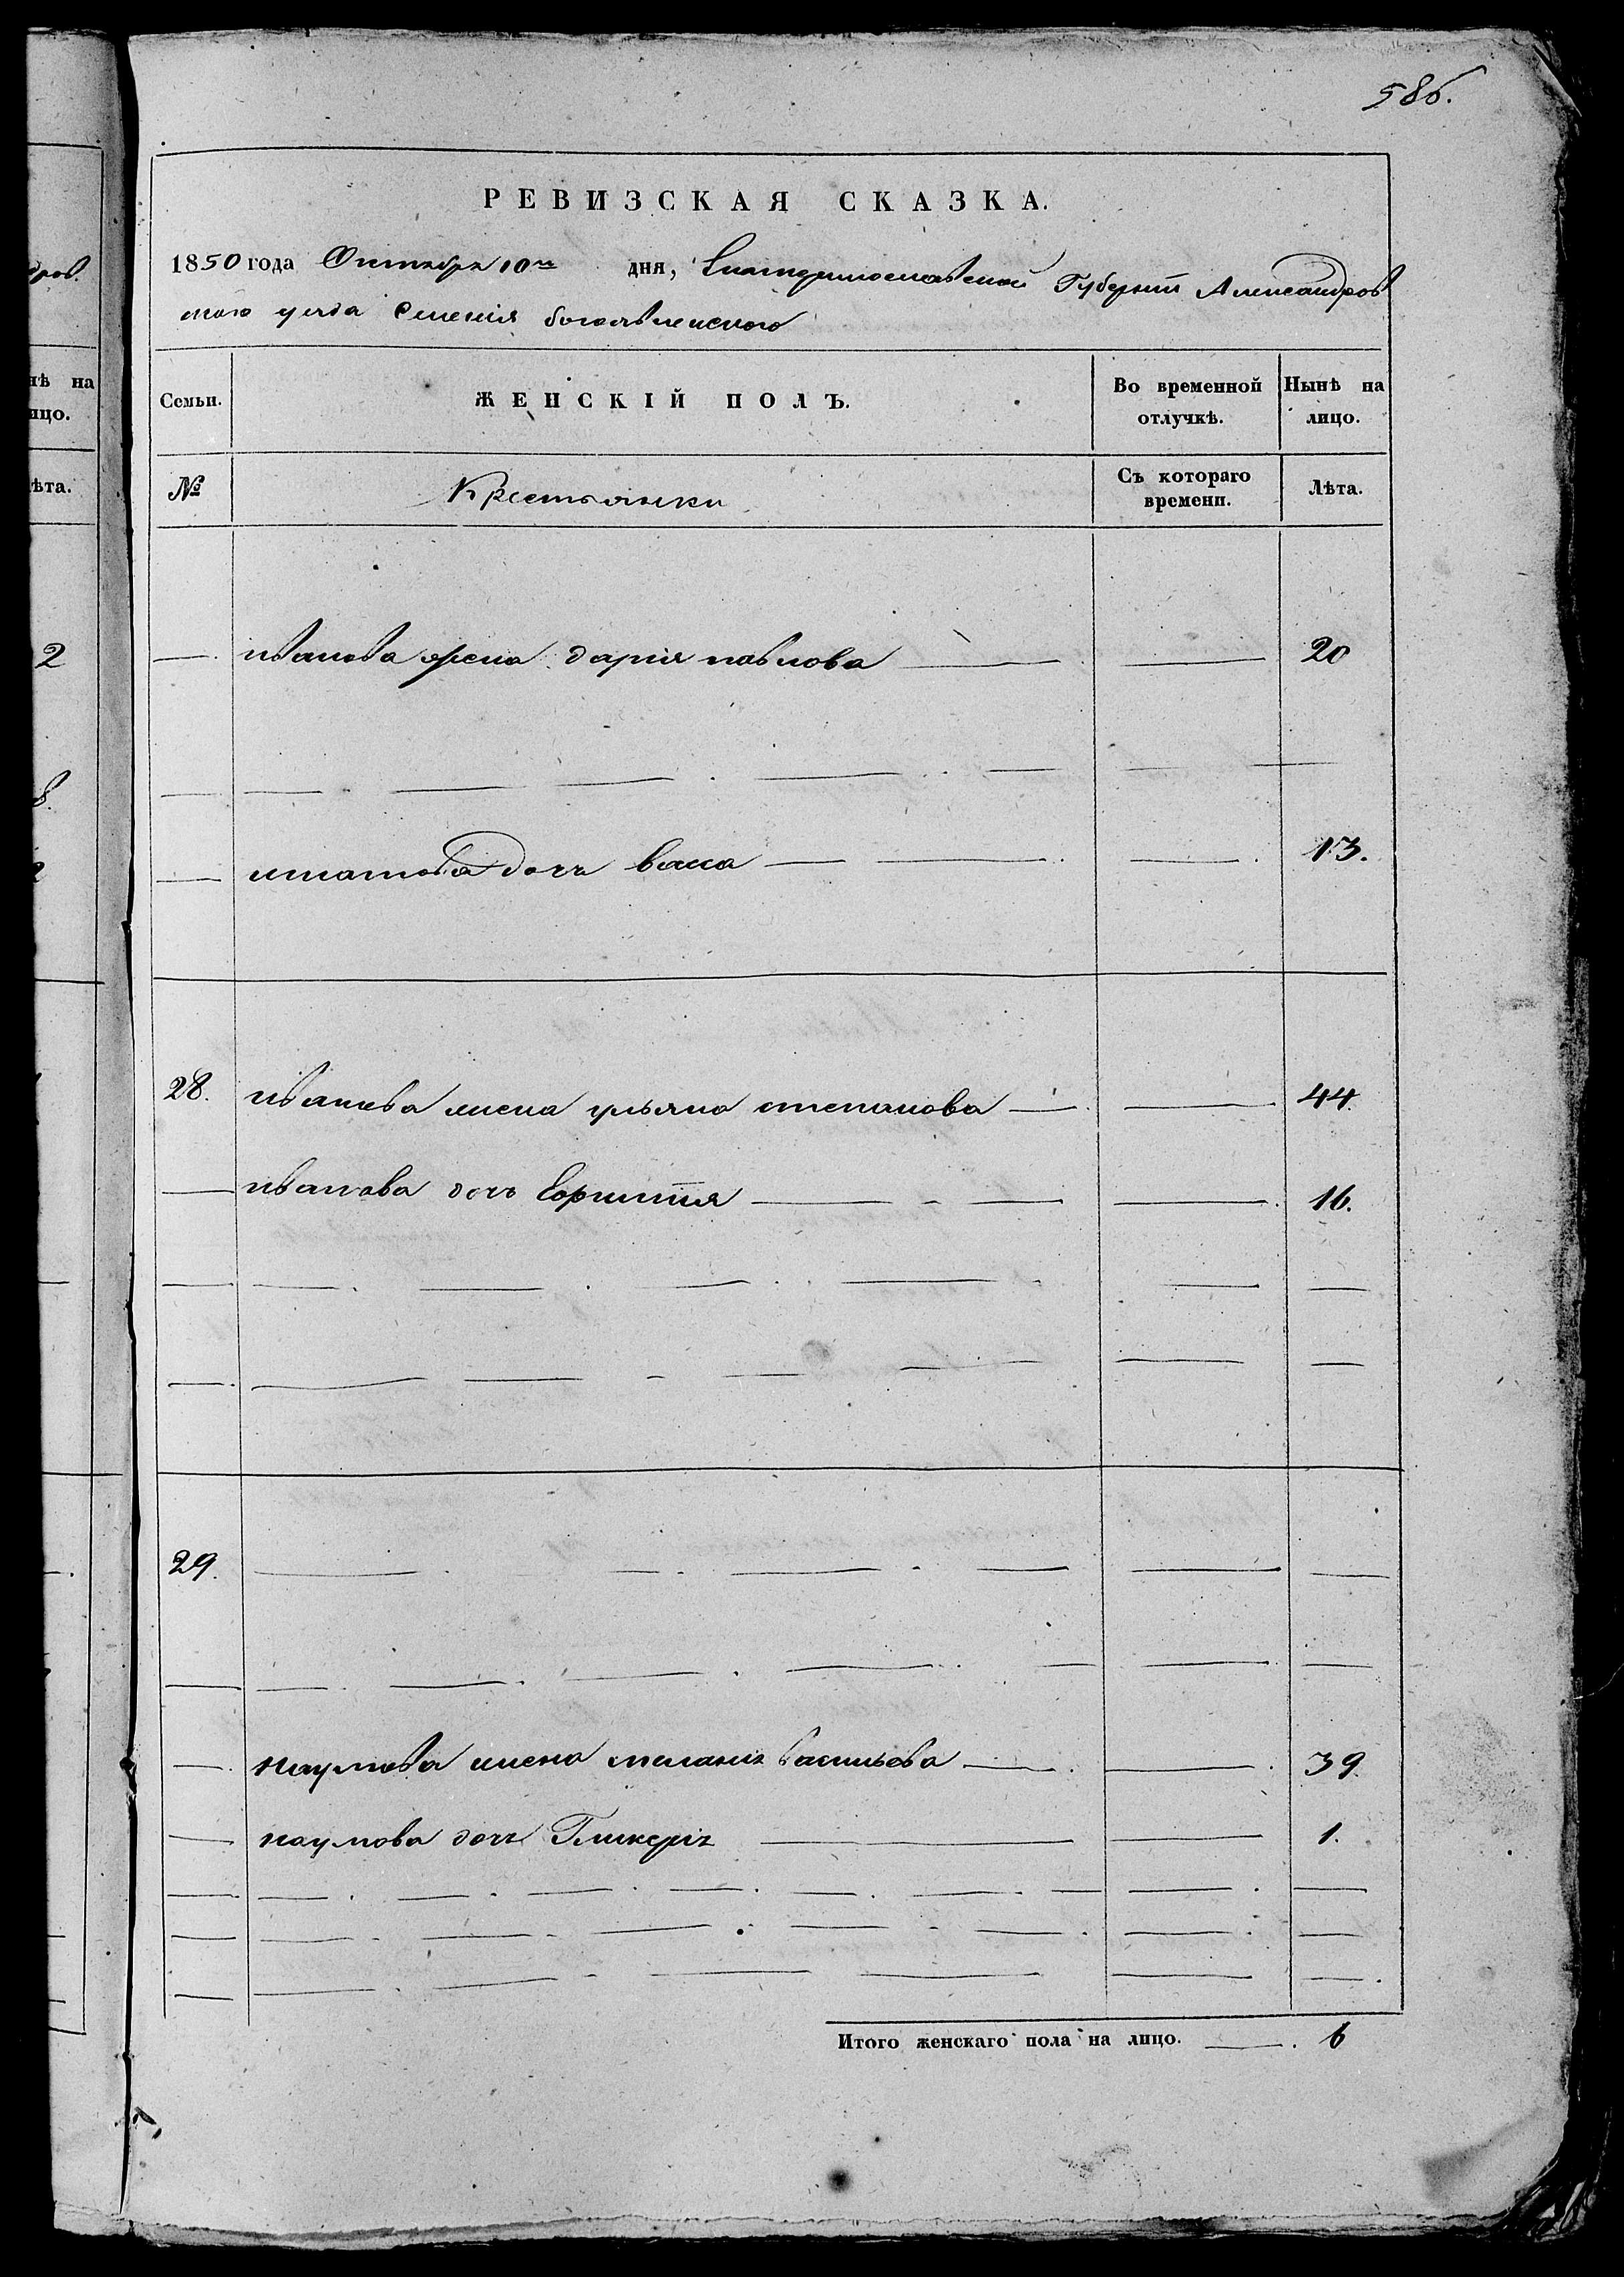 586.
РЕВИЗСКАЯ СКАЗКА.
1850 года Октября 10го дня, Екатеринославской Губерніи Александров
скаго уезда Селенія богоявленского
Семьи. ЖЕНСКІЙ ПОЛЪ. Во временной отлучкѣ. Нынѣ на лицо.
№ Крестьянки Съ котораго времени. Лѣта.
иванова жена дарія павлова 20
игнатова дочь васса 13.
28. иванова жена ульяна степанова 44.
иванова дочь 16.
29.
наумова жена меланія васильева 39.
наумова дочь Гликерія 1.
Итого женскаго пола на лицо. 6
дров.
нѣ на
ицо.
ѣта.
2